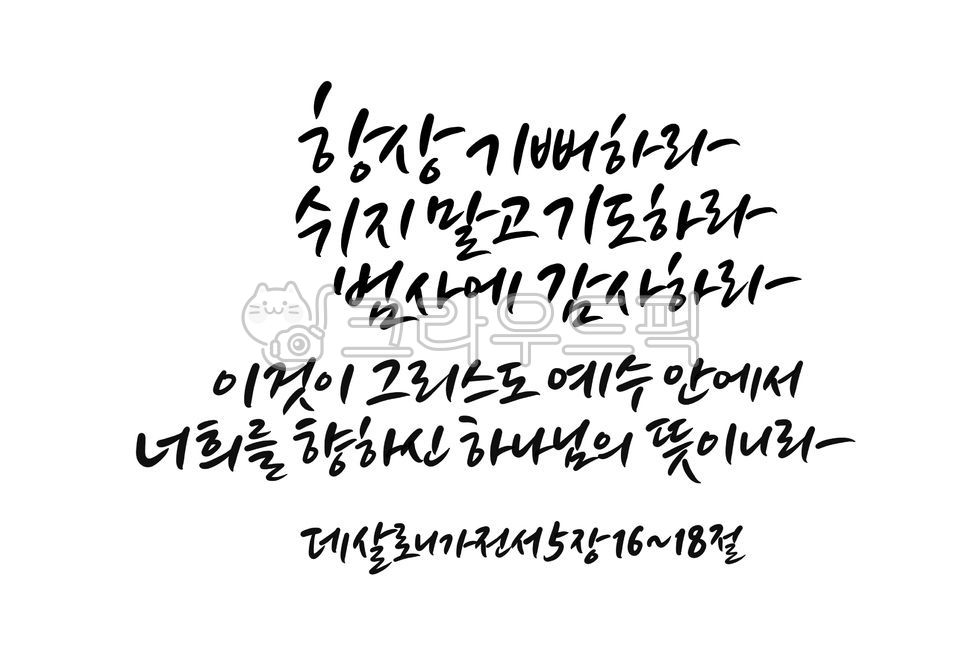 항상 기뻐하라
쉬지 말고 기도하라
범사에 감사하라
크라우드픽
이것이 그리스도 예수 안에서
너희를 향하신 하나님의 뜻이니라
데살로니가전서 5장 16~18절